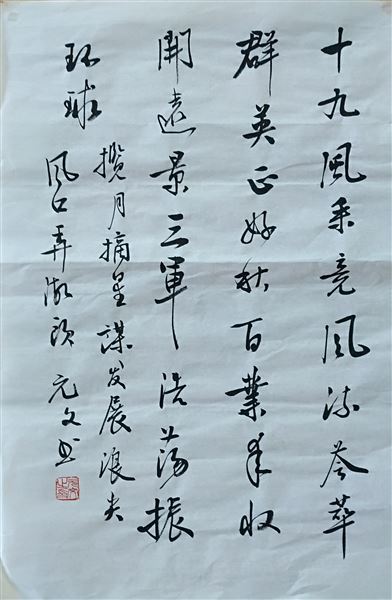 十九風采竞风流荟萃
群英正好秋百業丰收
開遠景三軍浩荡振
环球
攬月摘星謀发展浪尖
风口弄潮头 元文书